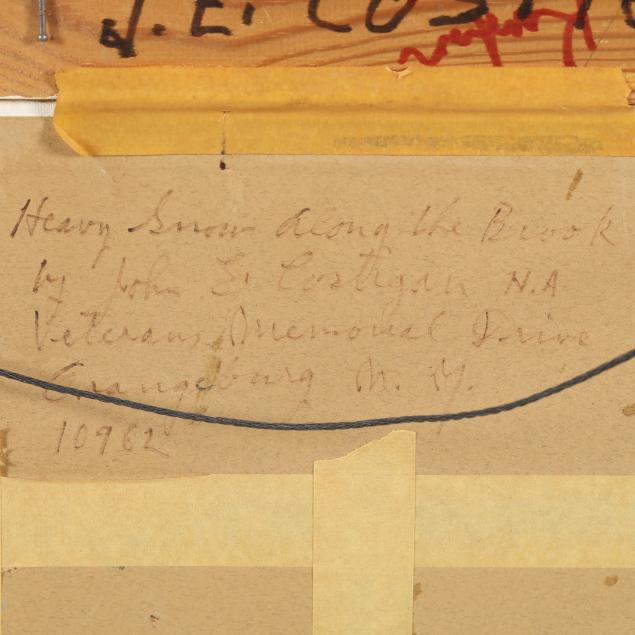 J. E. COST
Heavy Snow Along the Brook
by John E. Costigan N.A
Veterans Memorial Drive
Orangeburg N. Y.
10962